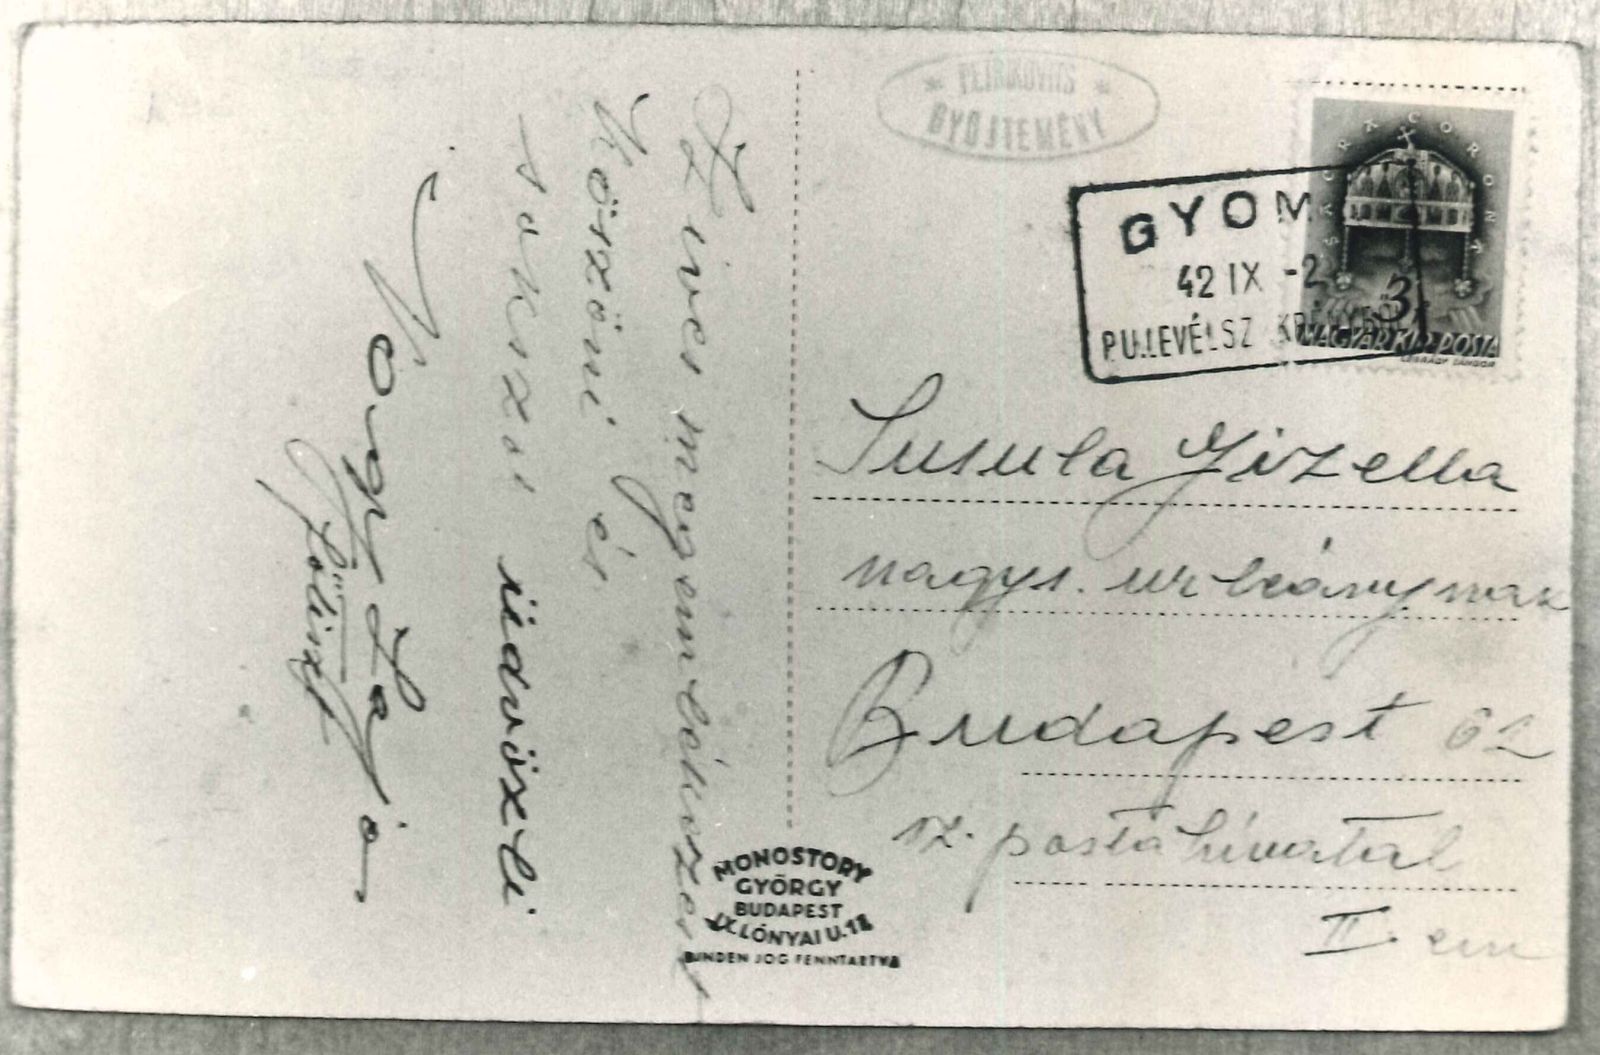 Szives megemlékezését
köszöni és
sokszor üdvözli
Nagy Lajos
PETRIKOVITS
GYŰJTEMÉNY
SACRA CORONA
3f
MAGYAR KIR. POSTA
GYOMA
42 IX -2
P.U. LEVÉLSZEKRÉNYBŐL
Susula Gizella
nagys. urleánynak
Budapest 62
sz. postahivatal
II. em
MONOSTORY
GYÖRGY
BUDAPEST
IX. LÓNYAI U. 18
MINDEN JOG FENNTARTVA